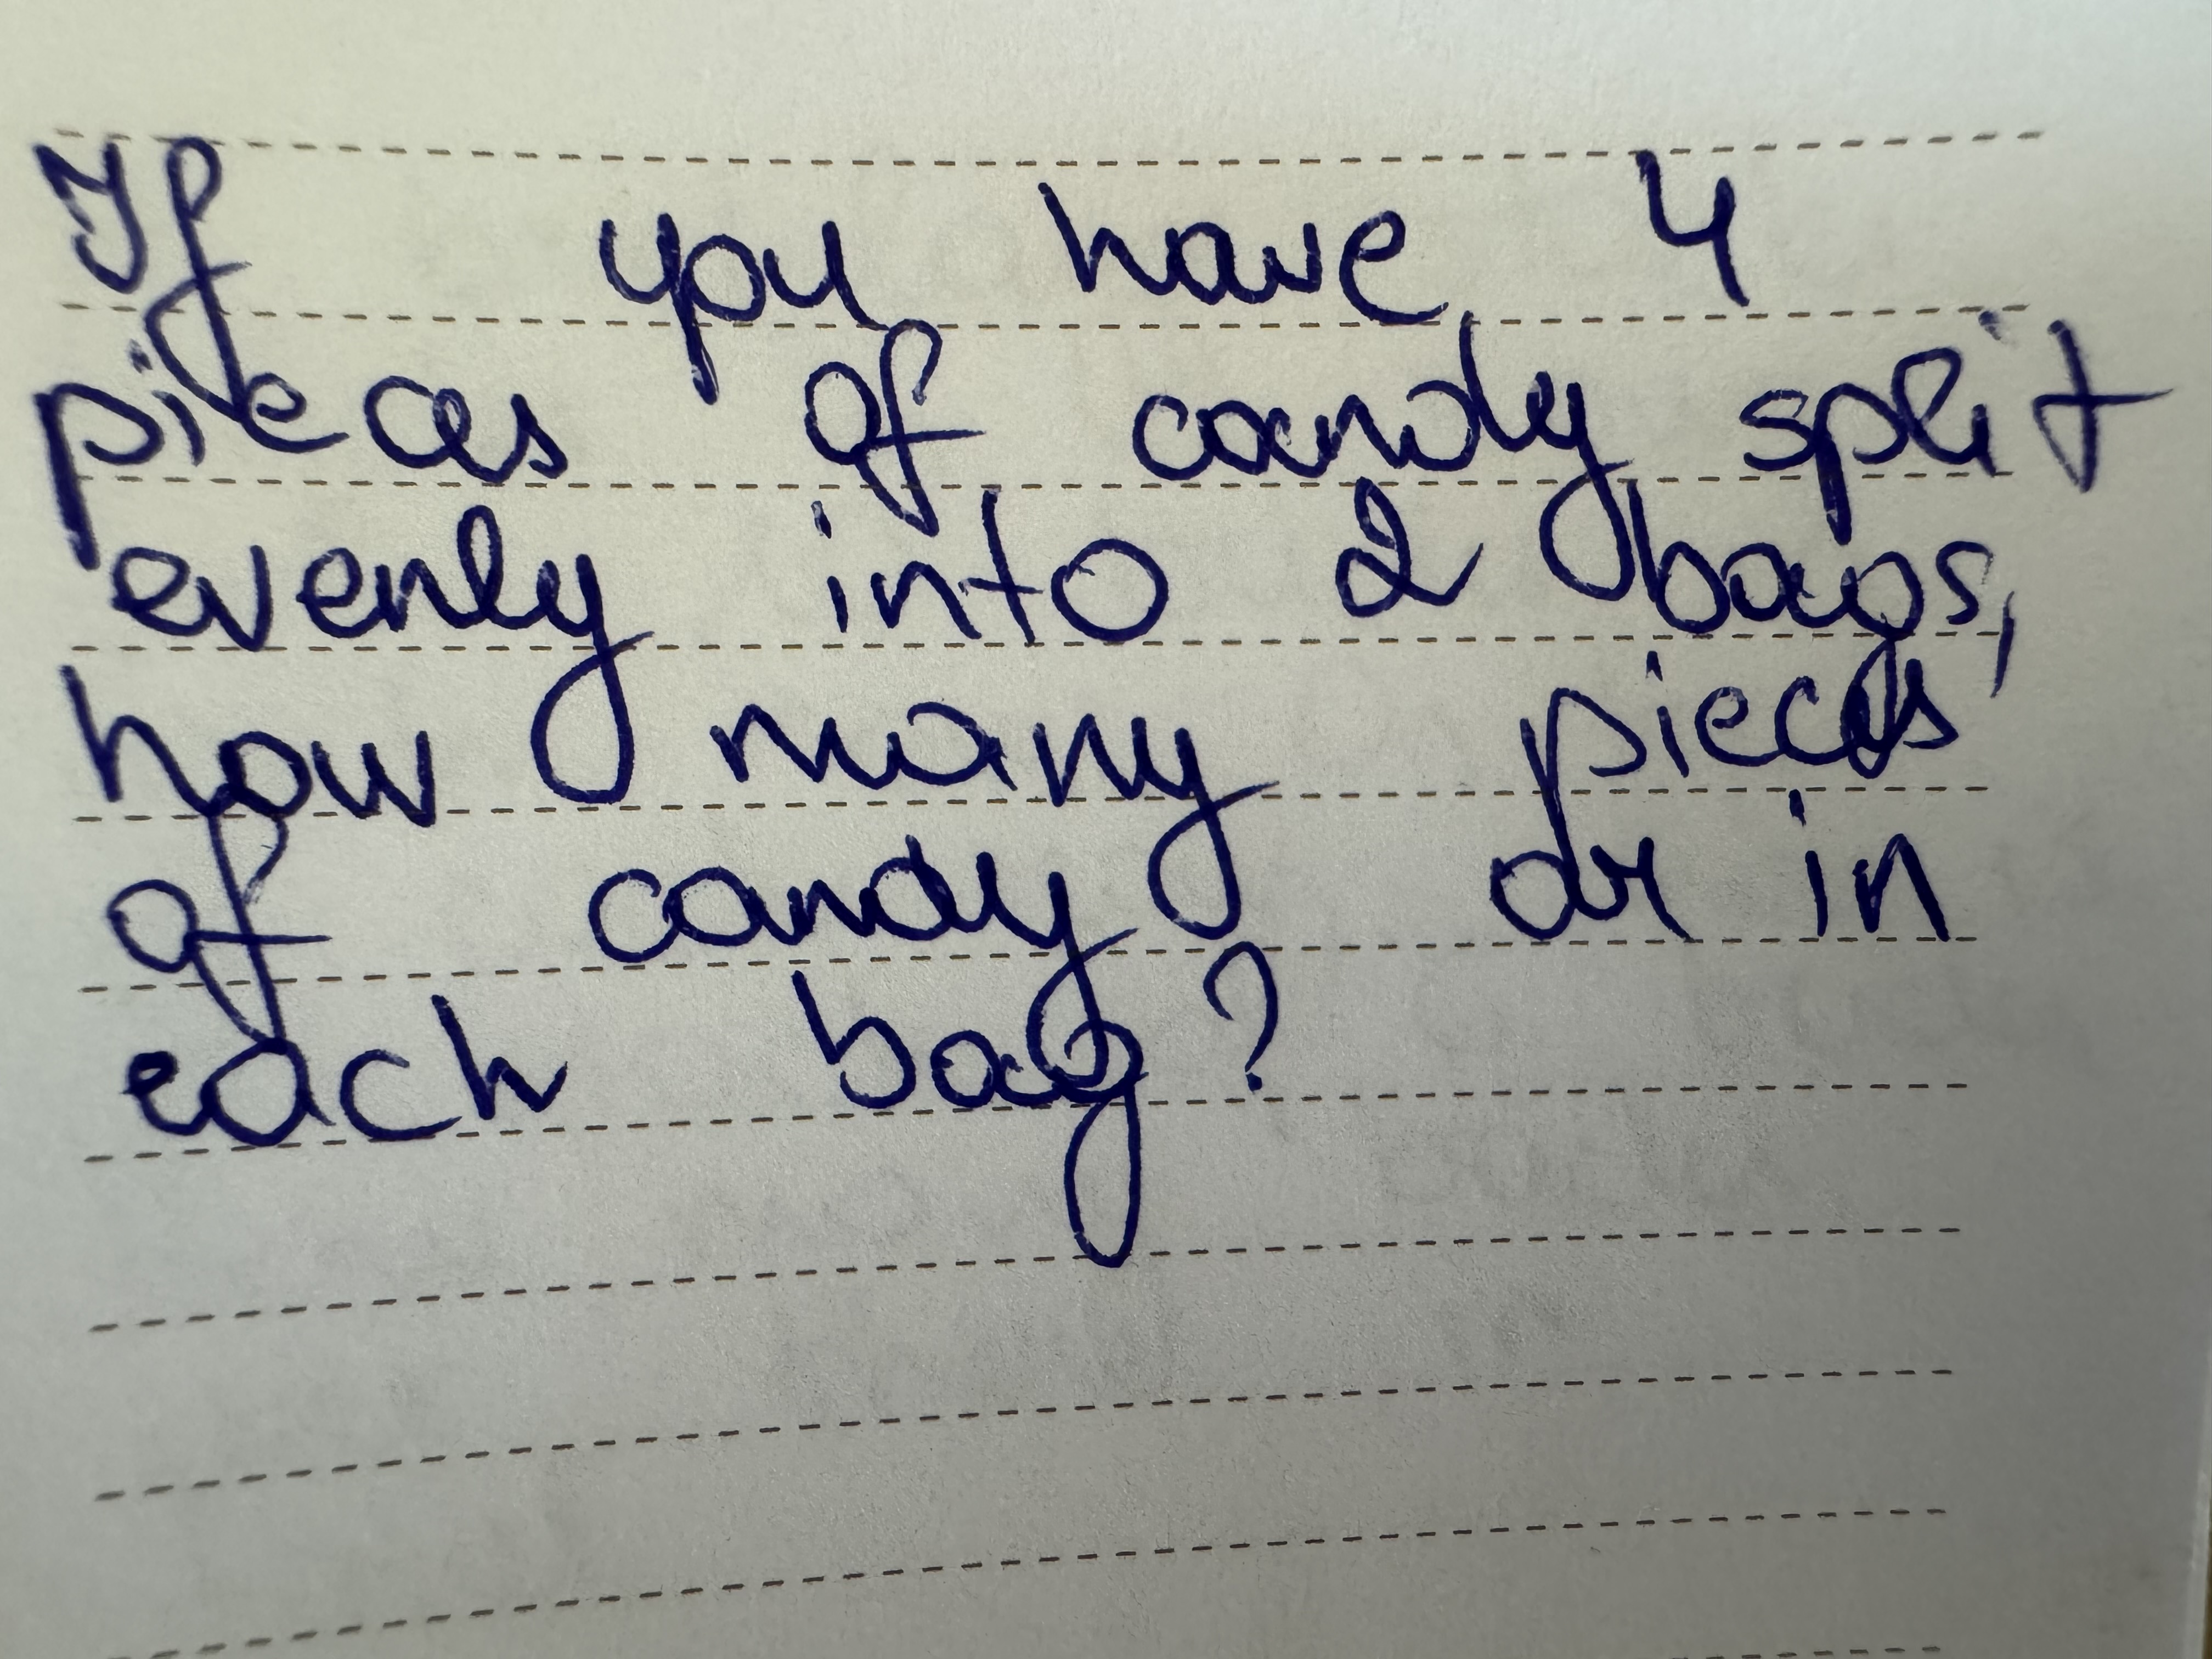 If you have 4
pieces of candy split
evenly into 2 bags,
how many pieces
of candy are in
each bag?